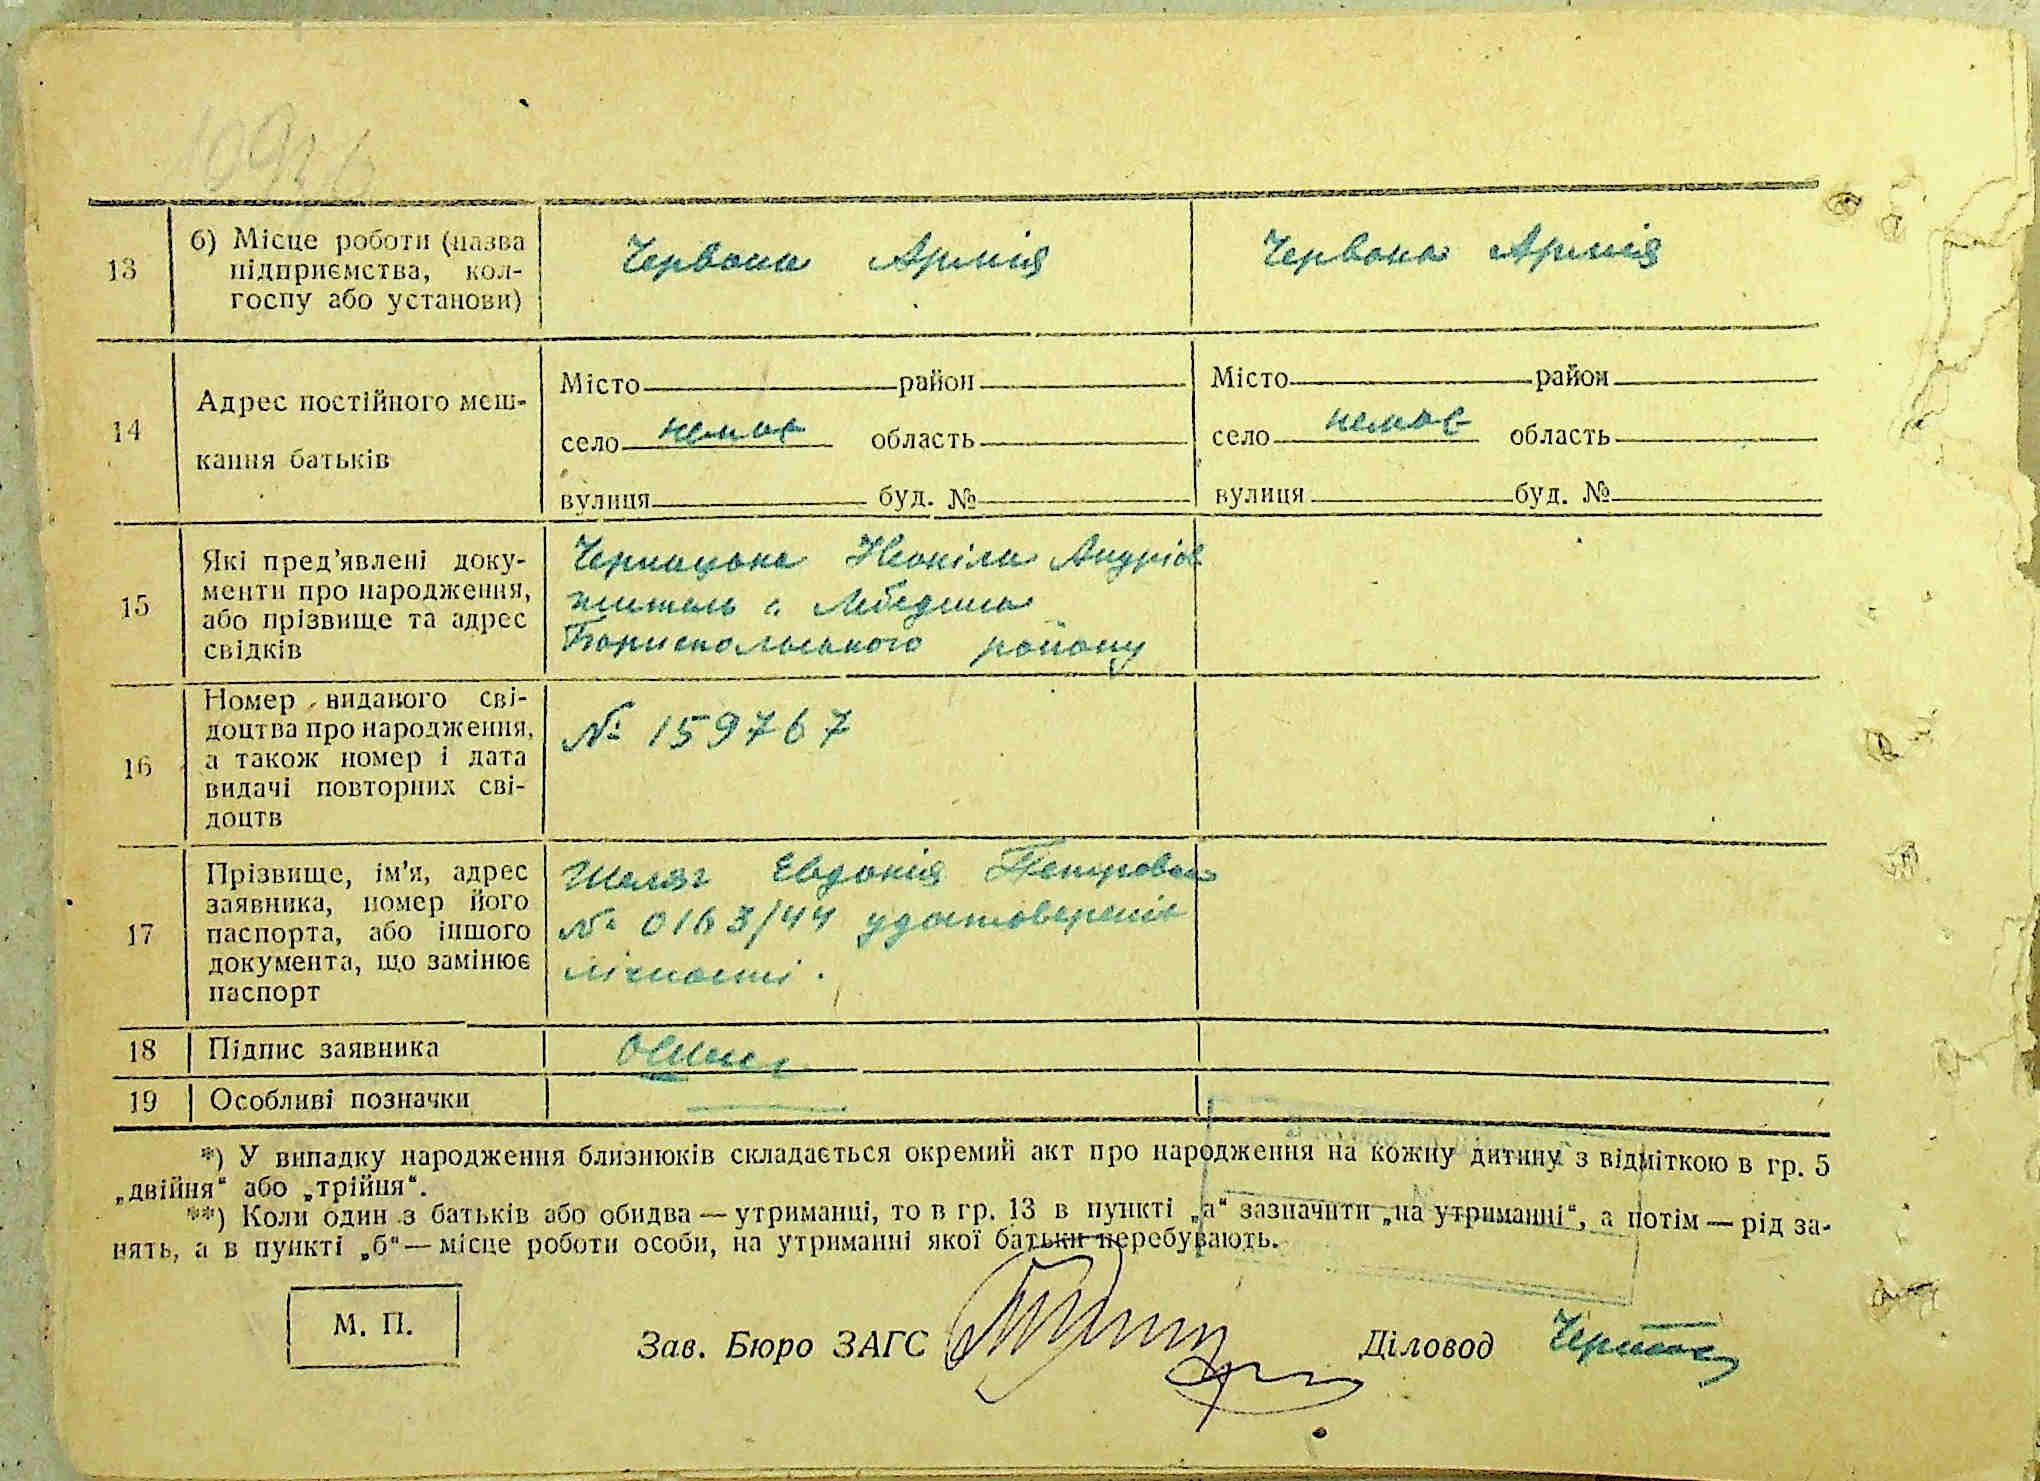 13
б) Місце роботи (назва
підприємства, кол-
госпу або установи)
Червона Армія
Червона Армія
14
Адрес постійного меш-
кання батьків
Місто район
село немає область
вулиця буд. №
Місто район
село немає область
вулиця буд. №
15
Які пред'явлені доку-
менти про народження,
або прізвище та адрес
свідків
Андріев
житель с. Лебедин
Бориспольського району
16
Номер виданого сві-
доцтва про народження,
а також номер і дата
видачі повторних сві-
доцтв
№ 159767
17
Прізвище, ім'я, адрес
заявника, номер його
паспорта, або іншого
документа, що замінює
паспорт
Шеляг Евдокія Петровна
№ 0163/44 удостоверенія
лічності.
18
Підпис заявника
19
Особливі позначки
*) У випадку народження близнюків складається окремий акт про народження на кожну дитину з відміткою в гр. 5
„двійня“ або „трійня“.
**) Коли один з батьків або обидва — утриманці, то в гр. 13 в пункті „а“ зазначити „на утриманні“, а потім — рід за-
нять, а в пункті „б“ — місце роботи особи, на утриманні якої батьки перебувають.
М. П.
Зав. Бюро ЗАГС
Діловод